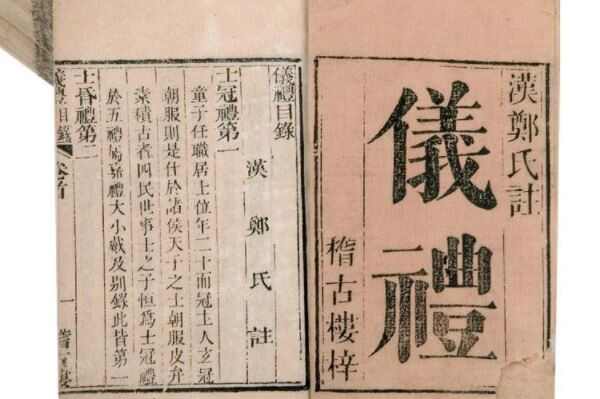 漢鄭氏註
儀禮
稽古樓梓
儀禮目錄
漢鄭氏註
士冠禮第一
童子任職居上位年二十而冠士人玄冠
朝服則是仕於諸侯天子之士朝服皮弁
素積古者四民世事士之子恒為士冠禮
於五禮屬嘉禮大小戴及別錄此皆第一
士昏禮第二
儀禮目錄 卷首 一 稽古樓